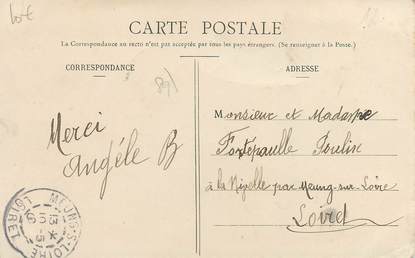 10€
CARTE POSTALE
La Correspondance au recto n'est pas acceptée par tous les pays étrangers. (Se renseigner à la Poste.)
CORRESPONDANCE
ADRESSE
891
Merci
Angéle B
Monsieur et Madame
Foulin
à la Nivelle par Meung-sur-Loire
Loiret
MEUNG-S-LOIRE
13 *
5
LOIRET